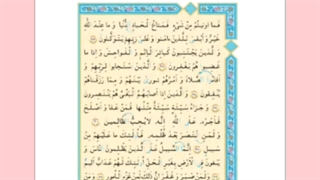 فَمَا أُوتِيتُمْ مِنْ شَيْءٍ فَمَتَاعُ الْحَيَاةِ الدُّنْيَا وَ مَا عِنْدَ اللَّهِ
خَيْرٌ وَ أَبْقَى لِلَّذِينَ آمَنُوا وَ عَلَى رَبِّهِمْ يَتَوَكَّلُونَ
وَ الَّذِينَ يَجْتَنِبُونَ كَبَائِرَ الْإِثْمِ وَ الْفَوَاحِشَ وَ إِذَا مَا
غَضِبُوا هُمْ يَغْفِرُونَ وَ الَّذِينَ اسْتَجَابُوا لِرَبِّهِمْ وَ
أَقَامُوا الصَّلَاةَ وَ أَمْرُهُمْ شُورَى بَيْنَهُمْ وَ مِمَّا رَزَقْنَاهُمْ
يُنْفِقُونَ وَ الَّذِينَ إِذَا أَصَابَهُمُ الْبَغْيُ هُمْ يَنْتَصِرُونَ
وَ جَزَاءُ سَيِّئَةٍ سَيِّئَةٌ مِثْلُهَا فَمَنْ عَفَا وَ أَصْلَحَ
فَأَجْرُهُ عَلَى اللَّهِ إِنَّهُ لَا يُحِبُّ الظَّالِمِينَ
وَ لَمَنِ انْتَصَرَ بَعْدَ ظُلْمِهِ فَأُولَئِكَ مَا عَلَيْهِمْ مِنْ
سَبِيلٍ إِنَّمَا السَّبِيلُ عَلَى الَّذِينَ يَظْلِمُونَ النَّاسَ وَ
يَبْغُونَ فِي الْأَرْضِ بِغَيْرِ الْحَقِّ أُولَئِكَ لَهُمْ عَذَابٌ أَلِيمٌ
وَ لَمَنْ صَبَرَ وَ غَفَرَ إِنَّ ذَلِكَ لَمِنْ عَزْمِ الْأُمُورِ وَ مَنْ